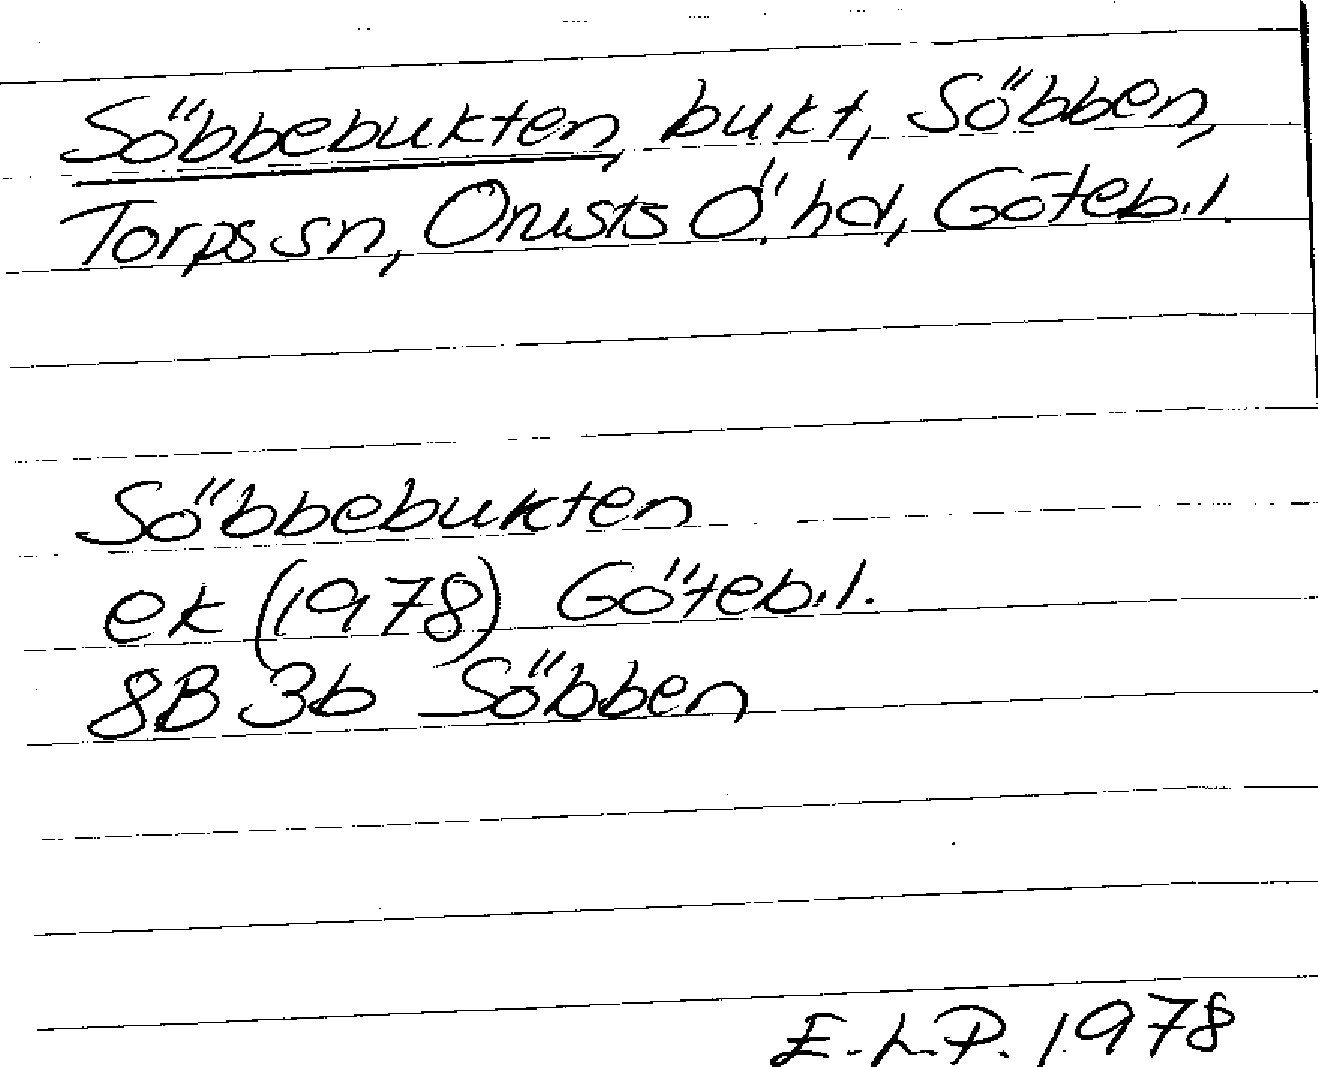 Söbbebukten, bukt, Söbben,
Torps sn, Orusts Ö. hd, Göteb.l
Söbbebukten
ek (1978) Göteb.l.
8B 3b Söbben
E.L.P. 1978